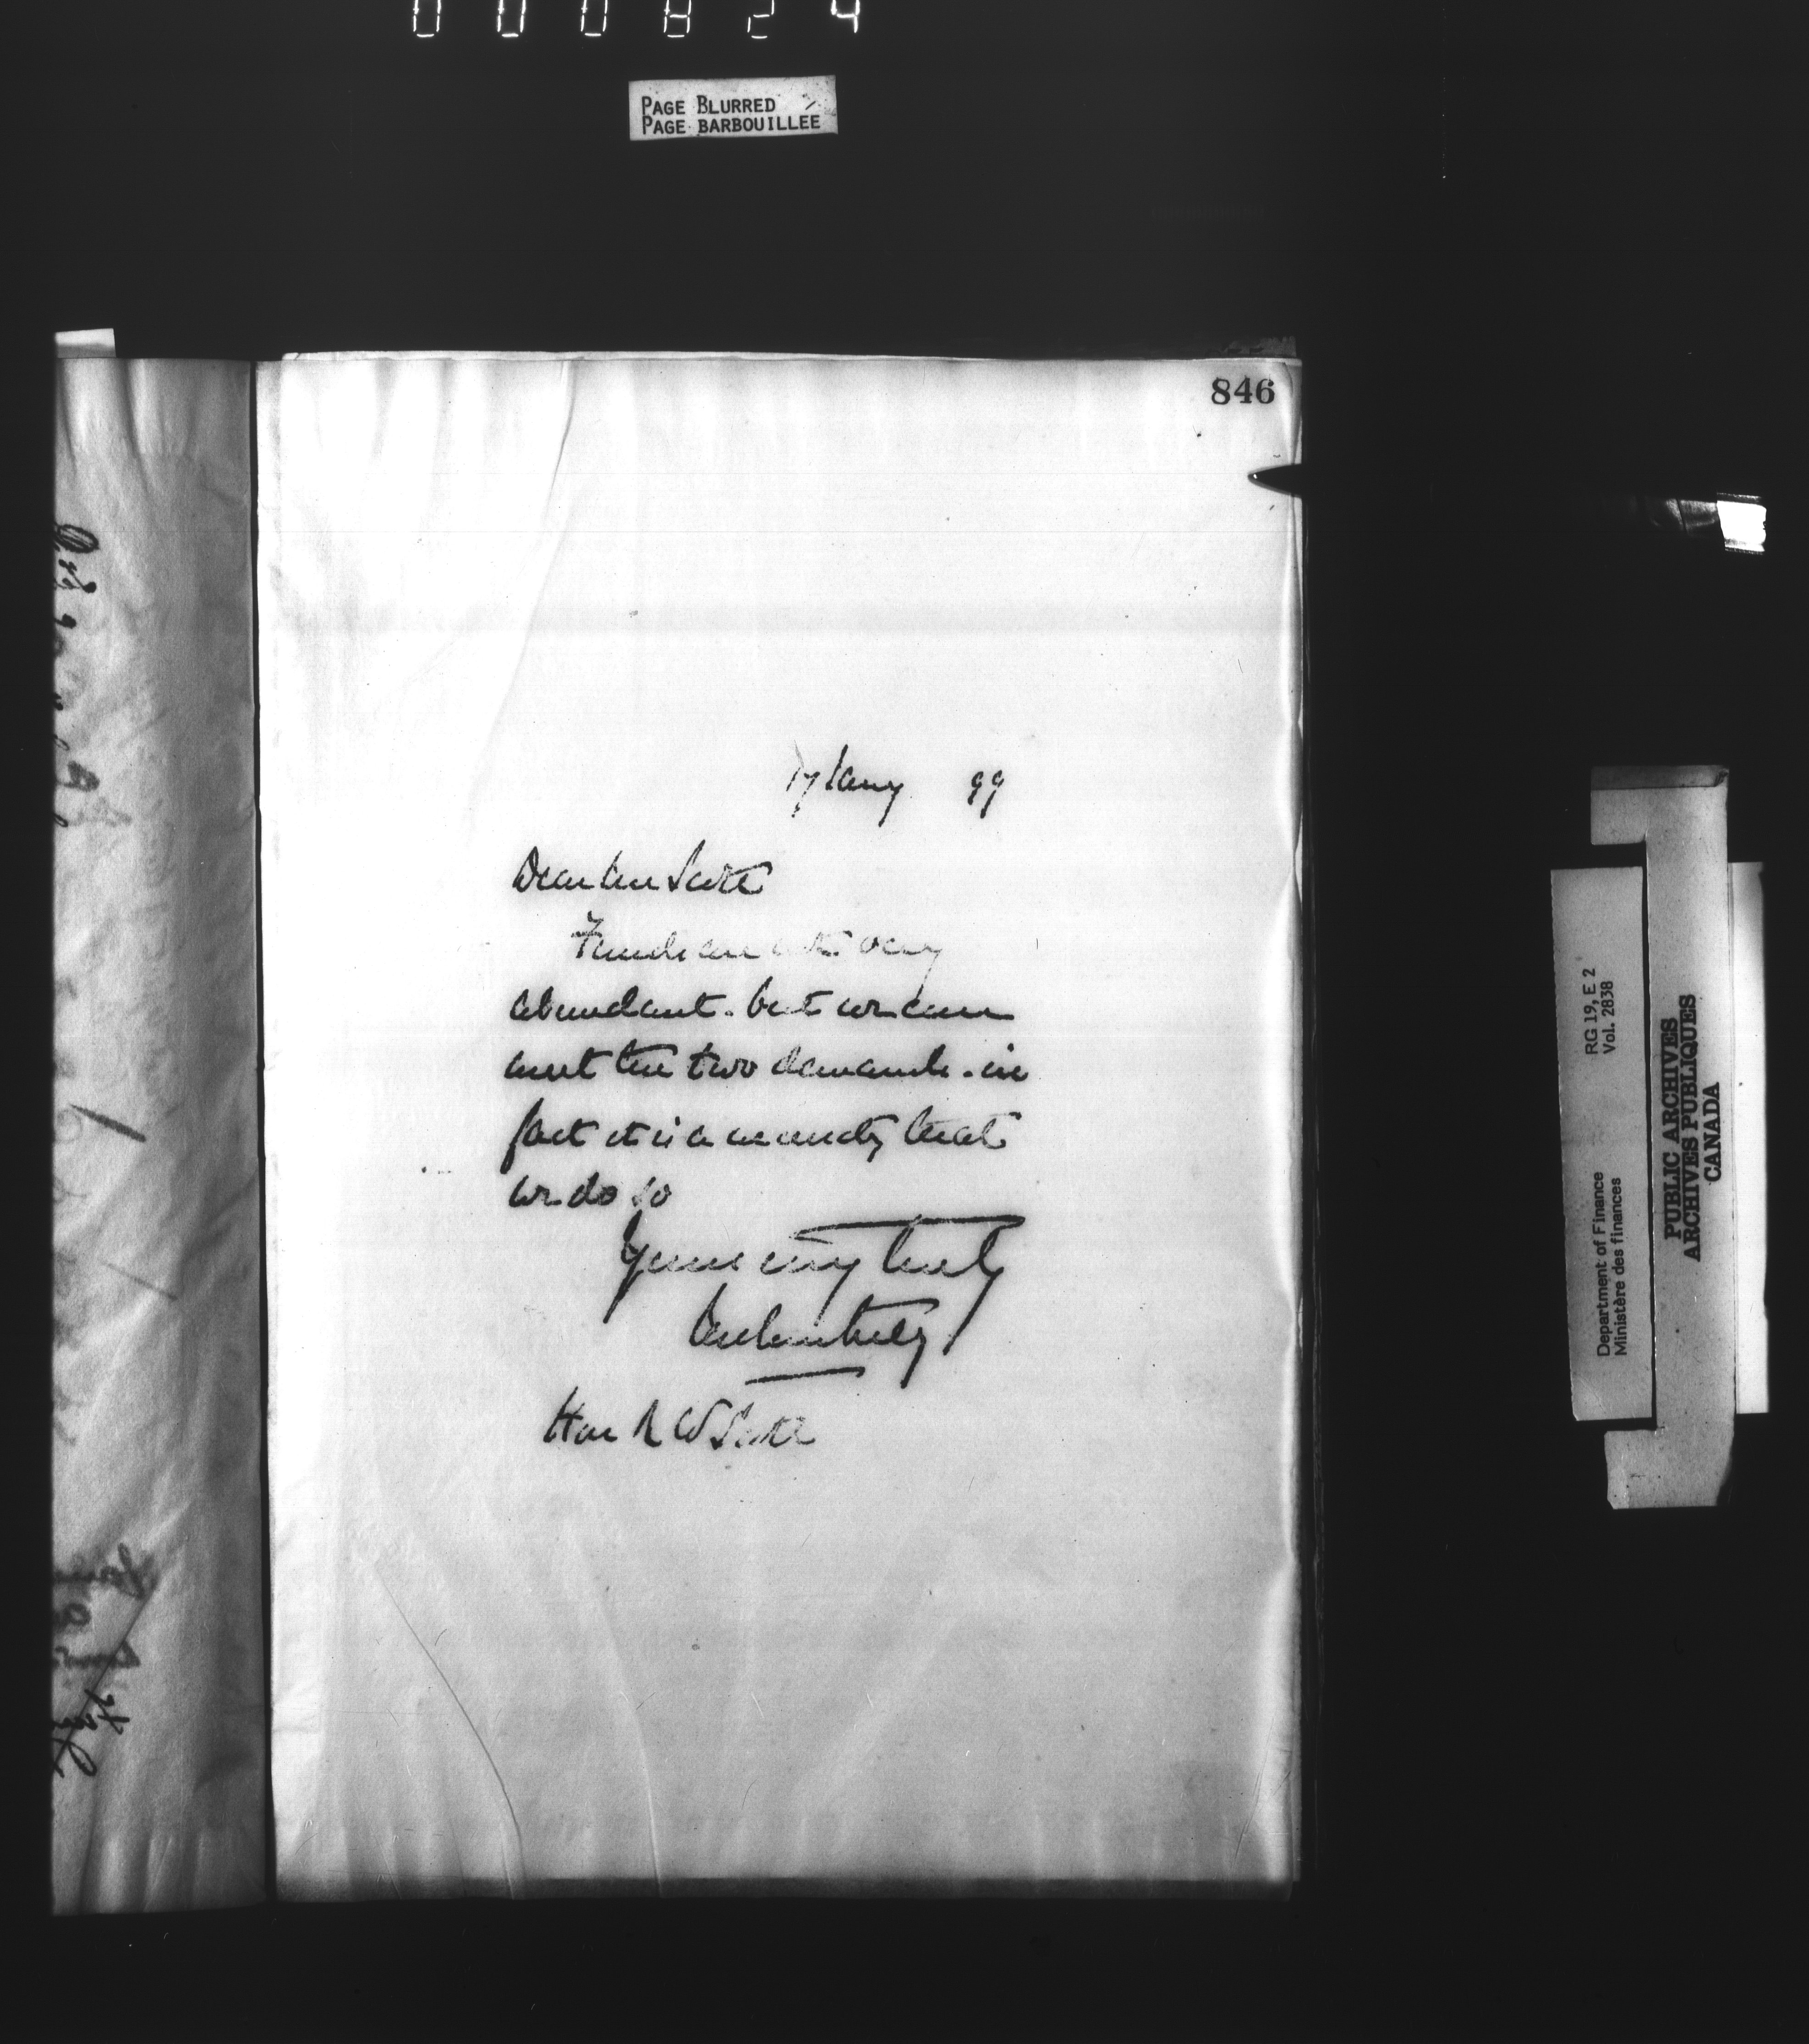 000824
PAGE BLURRED
PAGE BARBOUILLÉE
846
17 Jany 99
Dear Mr Scott
Funds are not very
abundant. but we can
meet the two demands. in
fact it is a necessity that
we do so
Yours very truly
Hon R W Scott
RG 19, E 2
Vol. 2838
Department of Finance
Ministère des finances
PUBLIC ARCHIVES
ARCHIVES PUBLIQUES
CANADA